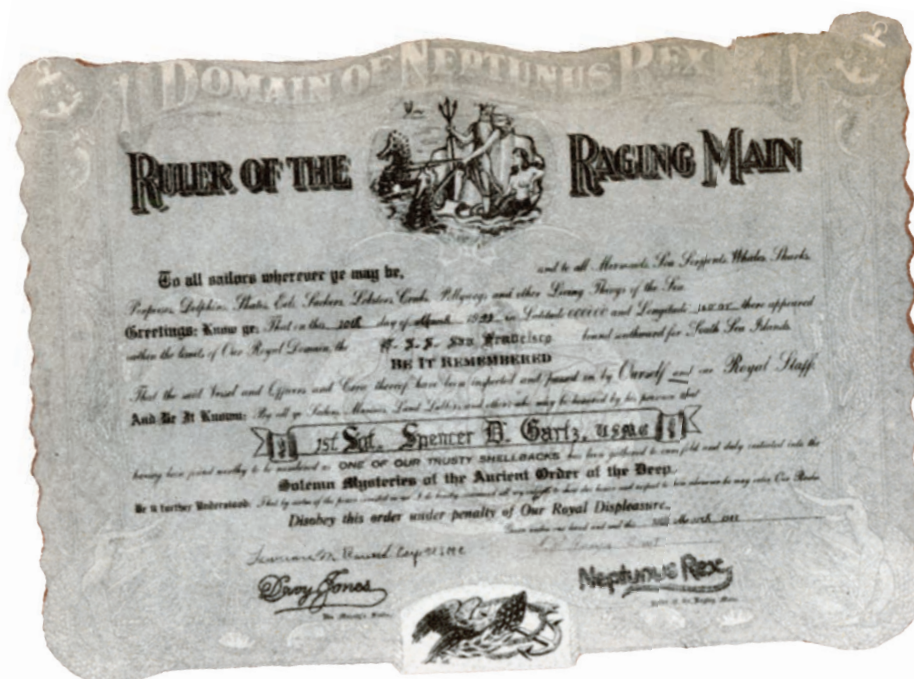 DOMAIN OF NEPTUNUS REX
RULER OF THE RAGING MAIN
To all sailors wherever ye may be, and to all Mermaids, Sea Serpents, Whales, Sharks,
Porpoises, Dolphins, Skates, Eels, Suckers, Lobsters, Crabs, Pollywogs and other Living Things of the Sea
Greetings: Know ye: That on this 10th day of March in Latitude 000000 and Longitude there appeared
within the limits of Our Royal Domain the U. S. S. San Francisco bound southward for South Sea Islands.
BE IT REMEMBERED
That the said Vessel and Officers and Crew thereof have been inspected and passed on by Ourself and our Royal Staff.
And Be It Known: By all ye Sailors, Marines, Land Lubbers and others who may be honored by his presence that
1st Sgt. Spencer D. Gartz, USMC
having been found worthy to be numbered as ONE OF OUR TRUSTY SHELLBACKS has been gathered to our fold and duly initiated into the
Solemn Mysteries of the Ancient Order of the Deep.
Be it further Understood: That by virtue of the power invested in me I do hereby command all my subjects to show due honor and respect to him wherever he may enter Our Realm.
Disobey this order under penalty of Our Royal Displeasure.
Given under our hand and seal this
Capt USMC
Davy Jones Neptunus Rex
His Majesty's Scribe Ruler of the Raging Main